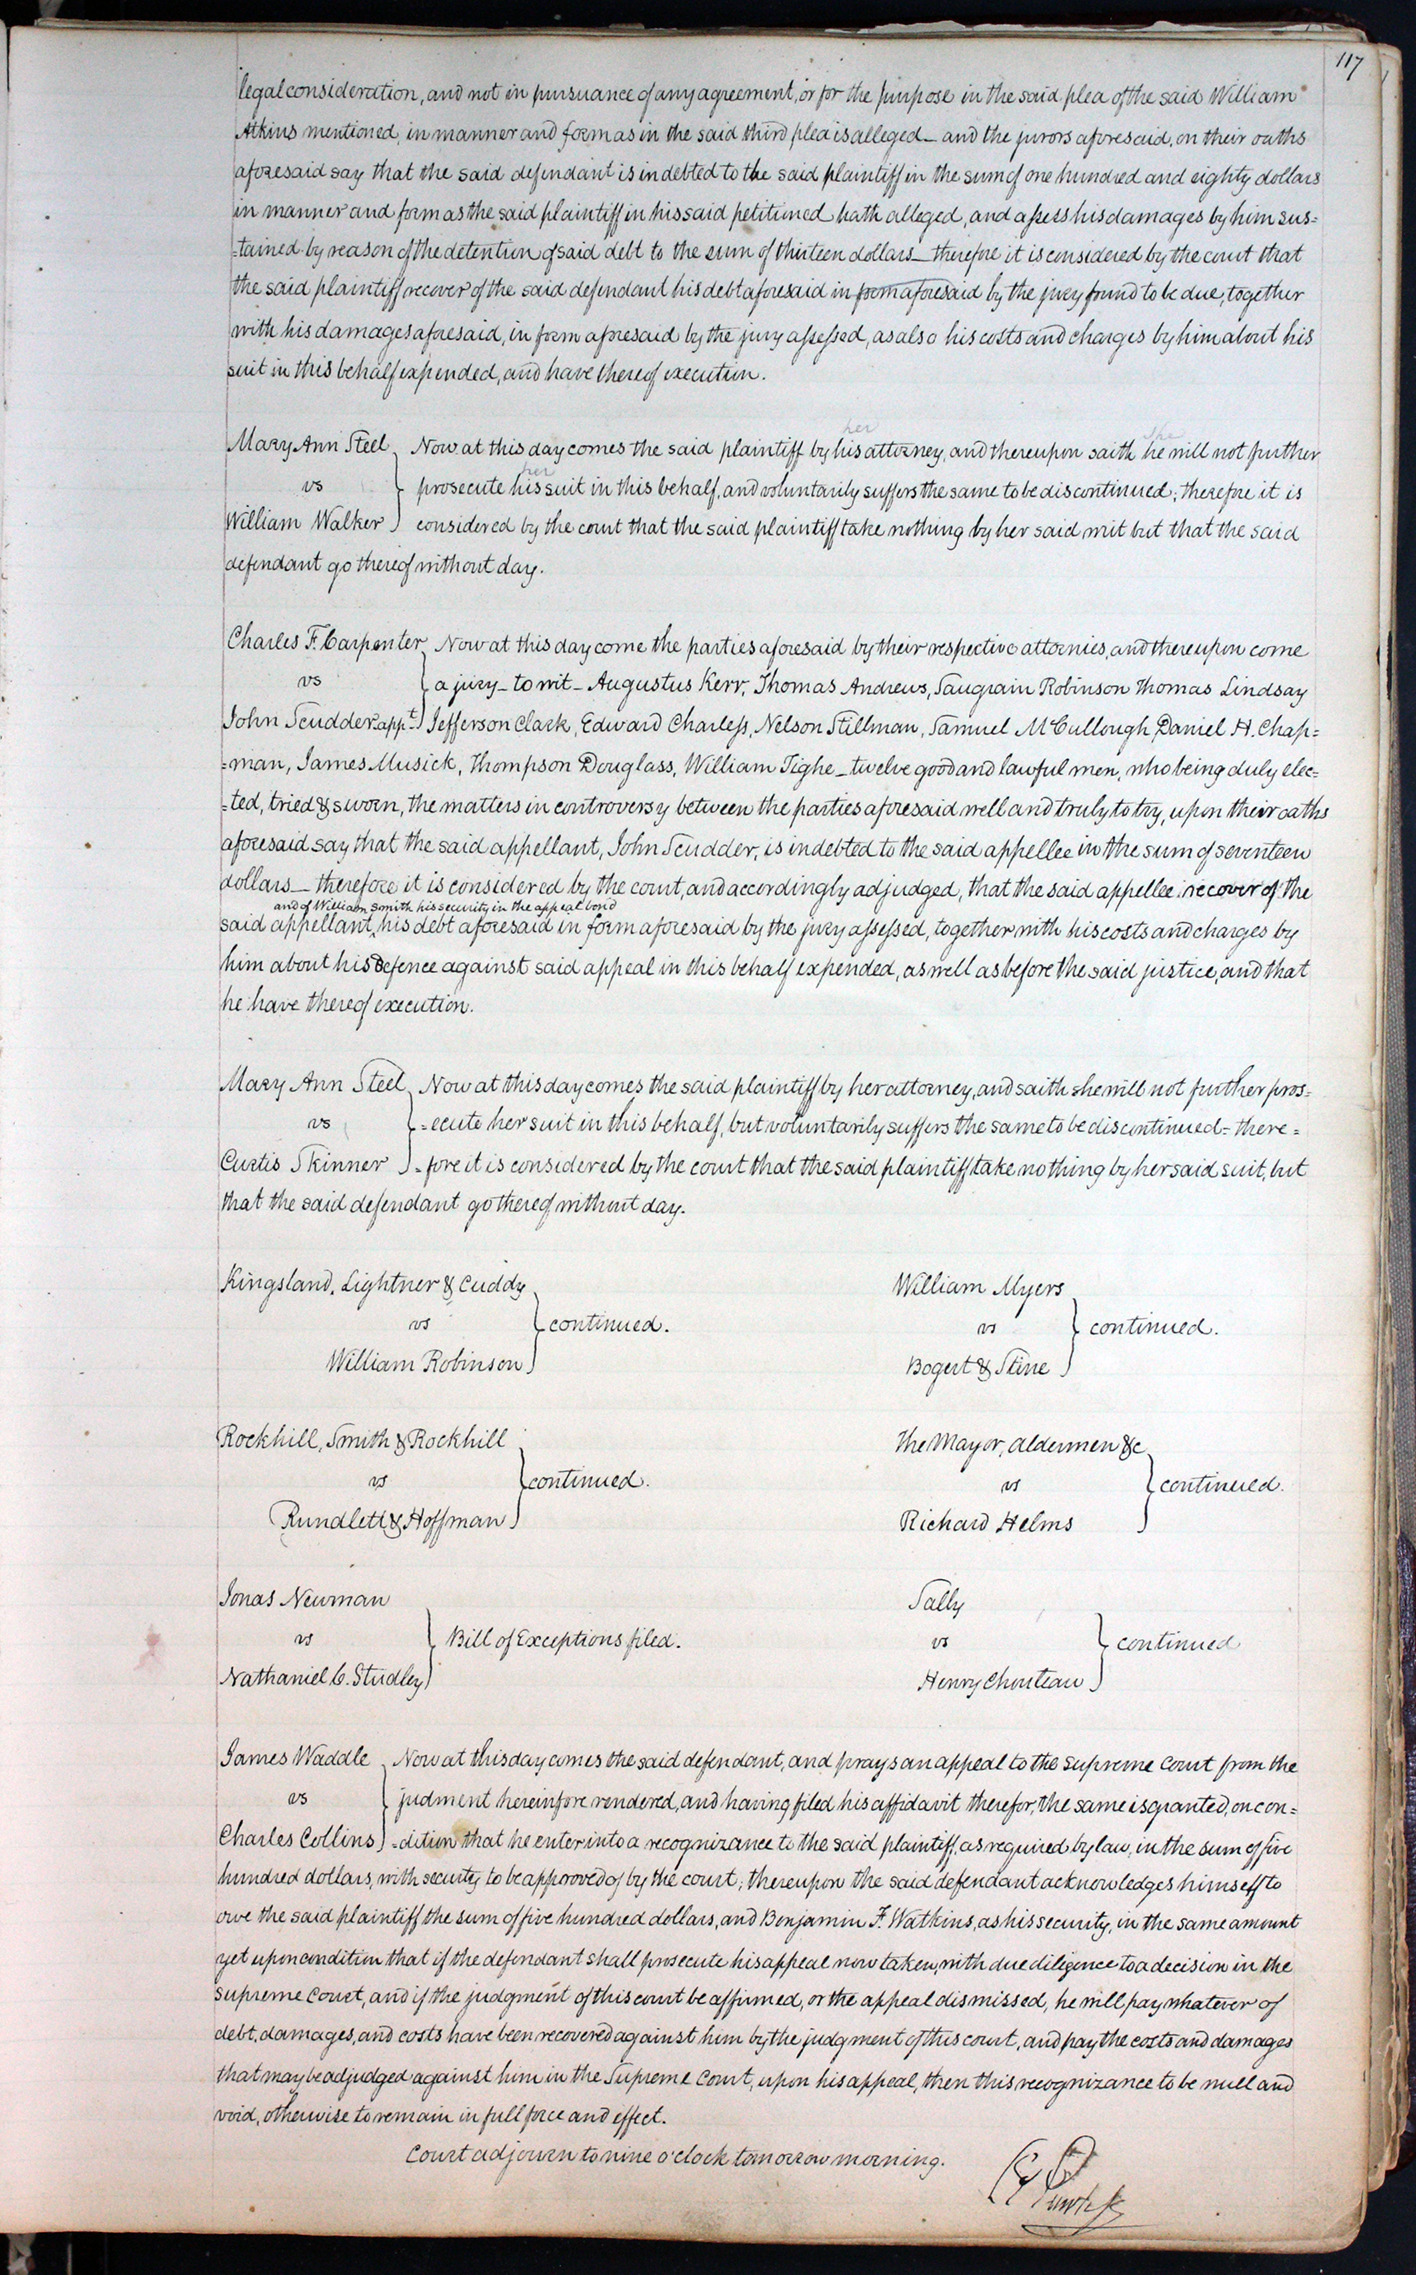 117
legal consideration, and not in pursuance of any agreement, or for the purpose in the said plea of the said William
Atkins mentioned, in manner and form as in the said third plea is alleged — and the jurors aforesaid, on their oaths
aforesaid say that the said defendant is indebted to the said plaintiff in the sum of one hundred and eighty dollars
in manner and form as the said plaintiff in his said petitioned hath alleged, and assess his damages by him sus=
=tained by reason of the detention of said debt to the sum of thirteen dollars — therefore it is considered by the court that
the said plaintiff recover of the said defendant his debt aforesaid in form aforesaid by the jury found to be due, together
with his damages aforesaid, in form aforesaid by the jury assessed, as also his costs and charges by him about his
suit in this behalf expended, and have thereof execution.
her she
Mary Ann Steel Now at this day comes the said plaintiff by his attorney, and thereupon saith he will not further
her
vs prosecute his suit in this behalf, and voluntarily suffers the same to be discontinued; therefore it is
William Walker considered by the court that the said plaintiff take nothing by her said writ but that the said
defendant go thereof without day.
Charles F. Carpenter Now at this day come the parties aforesaid by their respective attornies, and thereupon come
vs a jury — to wit — Augustus Kerr, Thomas Andrews, Saugrain Robinson Thomas Lindsay
John Scudder appt. Jefferson Clark, Edward Charless, Nelson Stillman, Samuel McCullough Daniel H. Chap=
=man, James Musick, Thompson Douglass, William Tighe — twelve good and lawful men, who being duly elec=
=ted, tried & sworn, the matters in controversy between the parties aforesaid well and truly to try, upon their oaths
aforesaid say that the said appellant, John Scudder, is indebted to the said appellee in the sum of seventeen
dollars — therefore it is considered by the court, and accordingly adjudged, that the said appellee recover of the
and of William Smith his security in the appeal bond
said appellant, his debt aforesaid in form aforesaid by the jury assessed, together with his costs and charges by
him about his defence against said appeal in this behalf expended, as well as before the said justice, and that
he have thereof execution.
Mary Ann Steel Now at this day comes the said plaintiff by her attorney, and saith she will not further pros=
vs =ecute her suit in this behalf, but voluntarily suffers the same to be discontinued = there =
Curtis Skinner =fore it is considered by the court that the said plaintiff take nothing by her said suit, but
that the said defendant go thereof without day.
Kingsland, Lightner & Cuddy
vs continued.
William Robinson
William Myers
vs continued.
Bogert & Stine
Rockhill, Smith & Rockhill
vs continued.
Rundlett & Hoffman
The Mayor, Aldermen &c
vs continued.
Richard Helms
Jonas Newman
vs Bill of Exceptions filed.
Nathaniel C. Studley
Sally
vs continued
Henry Chouteau
James Waddle Now at this day comes the said defendant, and prays an appeal to the Supreme Court from the
vs judment hereinfore rendered, and having filed his affidavit therefor, the same is granted, on con=
Charles Collins =dition that he enter into a recognizance to the said plaintiff, as required by law, in the sum of five
hundred dollars, with security to be approved of by the court; thereupon the said defendant acknowledges himself to
owe the said plaintiff the sum of five hundred dollars, and Benjamin F. Watkins, as his security, in the same amount
yet upon condition that if the defendant shall prosecute his appeal now taken, with due diligence to a decision in the
Supreme Court, and if the judgment of this court be affirmed, or the appeal dismissed, he will pay whatever of
debt, damages, and costs have been recovered against him by the judgment of this court, and pay the costs and damages
that may be adjudged against him in the Supreme Court, upon his appeal, then this recognizance to be null and
void, otherwise to remain in full force and effect.
Court adjourn to nine o'clock tomorrow morning.